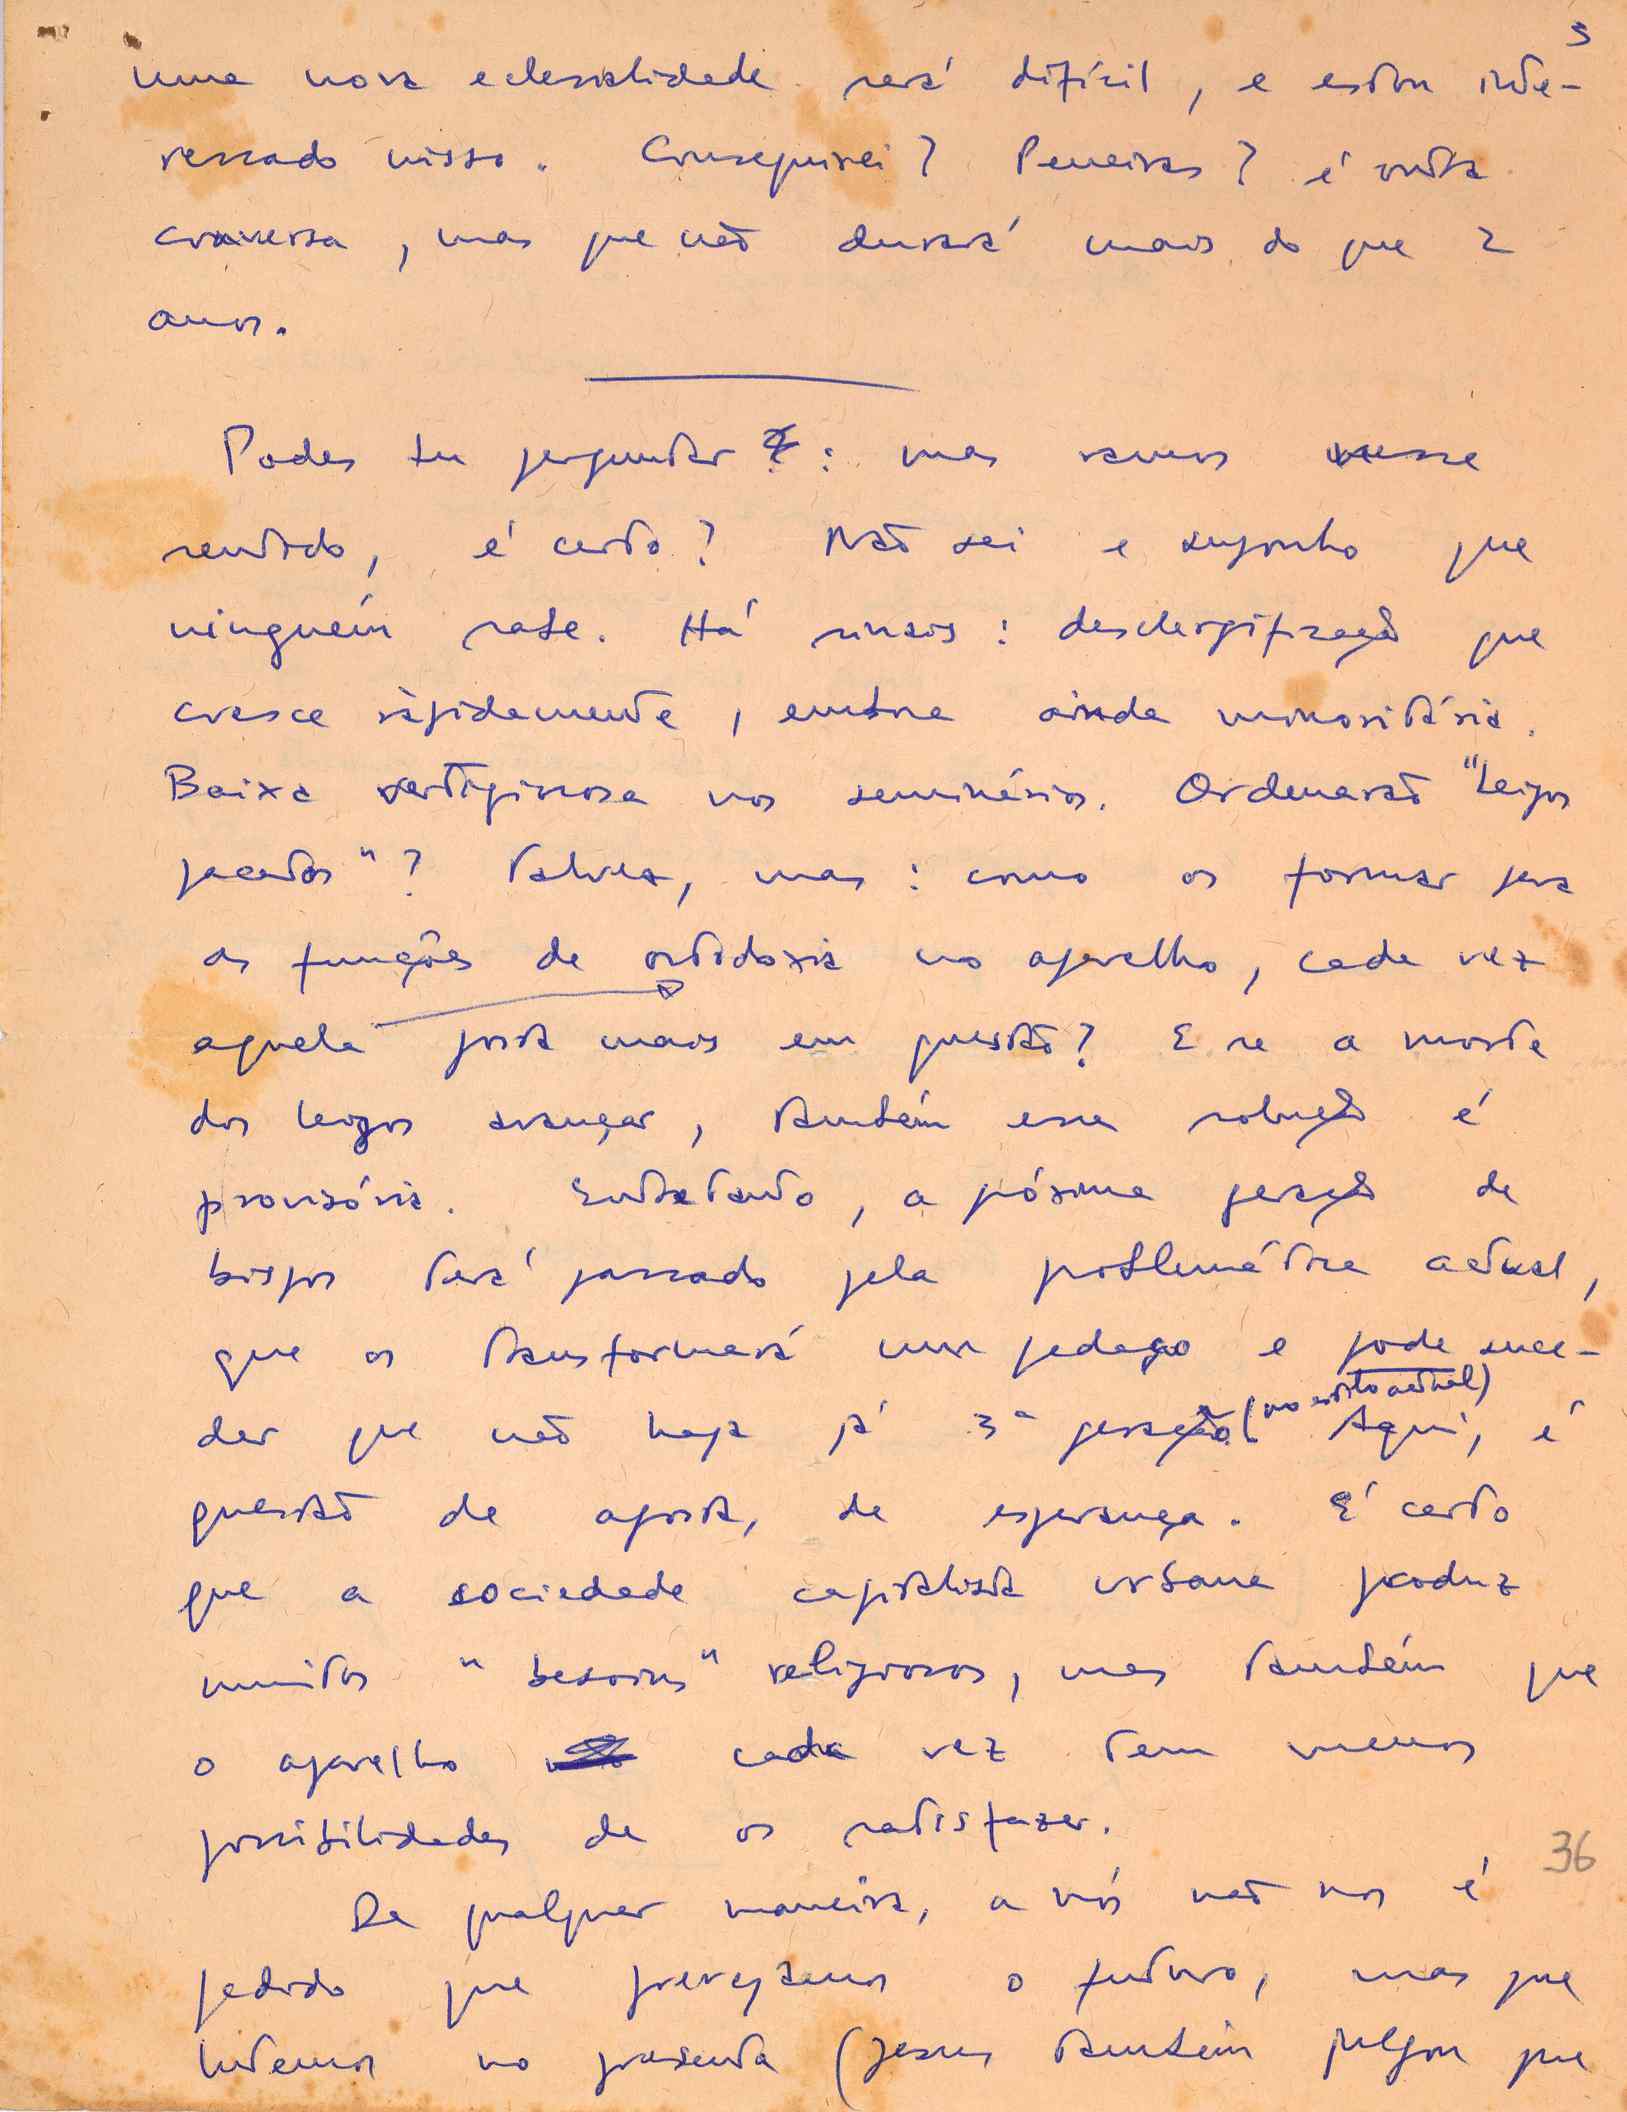 5
uma nova eclesialidade será difícil, e estou inte-
ressado nisso. Conseguirei? Peneiras? é outra
conversa, mas que não durará mais do que 2
anos.
Podes tu perguntar : mas vamos nesse
sentido, é certo? Não sei e suponho que
ninguém sabe. Há sinais: desclergificação que
cresce ràpidamente, embora ainda minoritária.
Baixa vertiginosa nos seminários. Ordenarão "leigos
pacatos"? Talvez, mas: como os formar para
as funções de ortodoxia no aparelho, cada vez
aquela posta mais em questão? E se a morte
dos leigos avançar, também essa solução é
provisória. Entretanto, a próxima geração de
bispos terá passado pela problemática actual,
que os transformará um pedaço e pode suce-
der que não haja já 3ª geração (no estilo actual). Aqui, é
questão de aposta, de esperança. É certo
que a sociedade capitalista urbana produz
muitos "besoins" religiosos, mas também que
o aparelho cada vez tem menos
possibilidades de os satisfazer.
36
De qualquer maneira, a nós não nos é
pedido que prevejamos o futuro, mas que
lutemos no presente (Jesus também julgou que